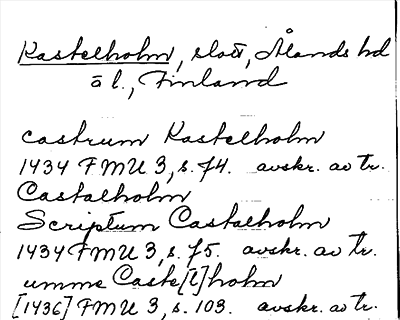 Kastelholm, slott, Ålands hd
ä l., Finland
castrum Kastelholm
1434 FMU 3, s. 74. avskr. av tr.
Castalholm
Scriptum Castalholm
1434 FMU 3, s. 75. avskr. av tr.
umme Caste[l]holm
[1436] FMU 3, s. 103. avskr. av tr.